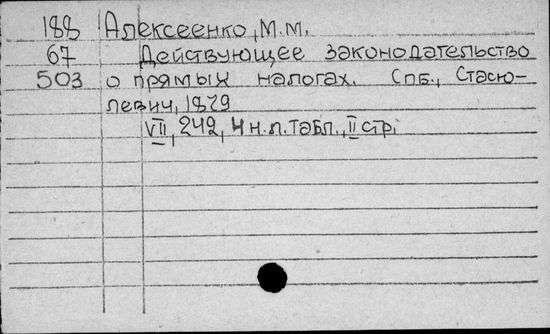 188 Алексеенко, М.М.
67 Действующее законодательство
503 о прямых налогах. Спб., Стасю-
левич, 1829
VII, 242, 4 н.л. табл., II стр.